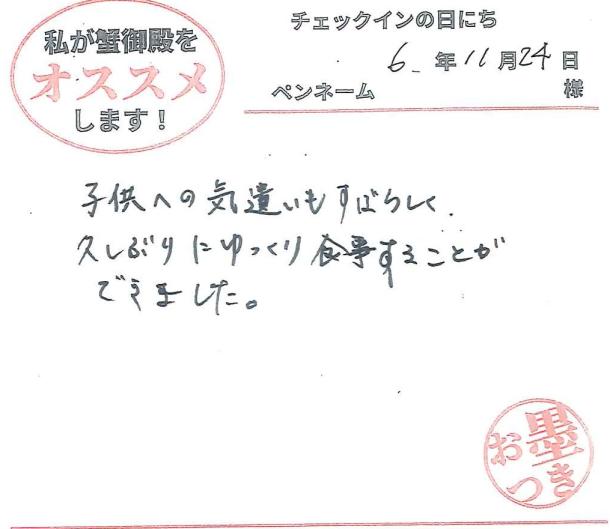 私が蟹御殿を
オススメ
します！
チェックインの日にち
6年11月24日
ペンネーム 様
子供への気遣いもすばらしく、
久しぶりにゆっくり食事することが
できました。
お墨つき